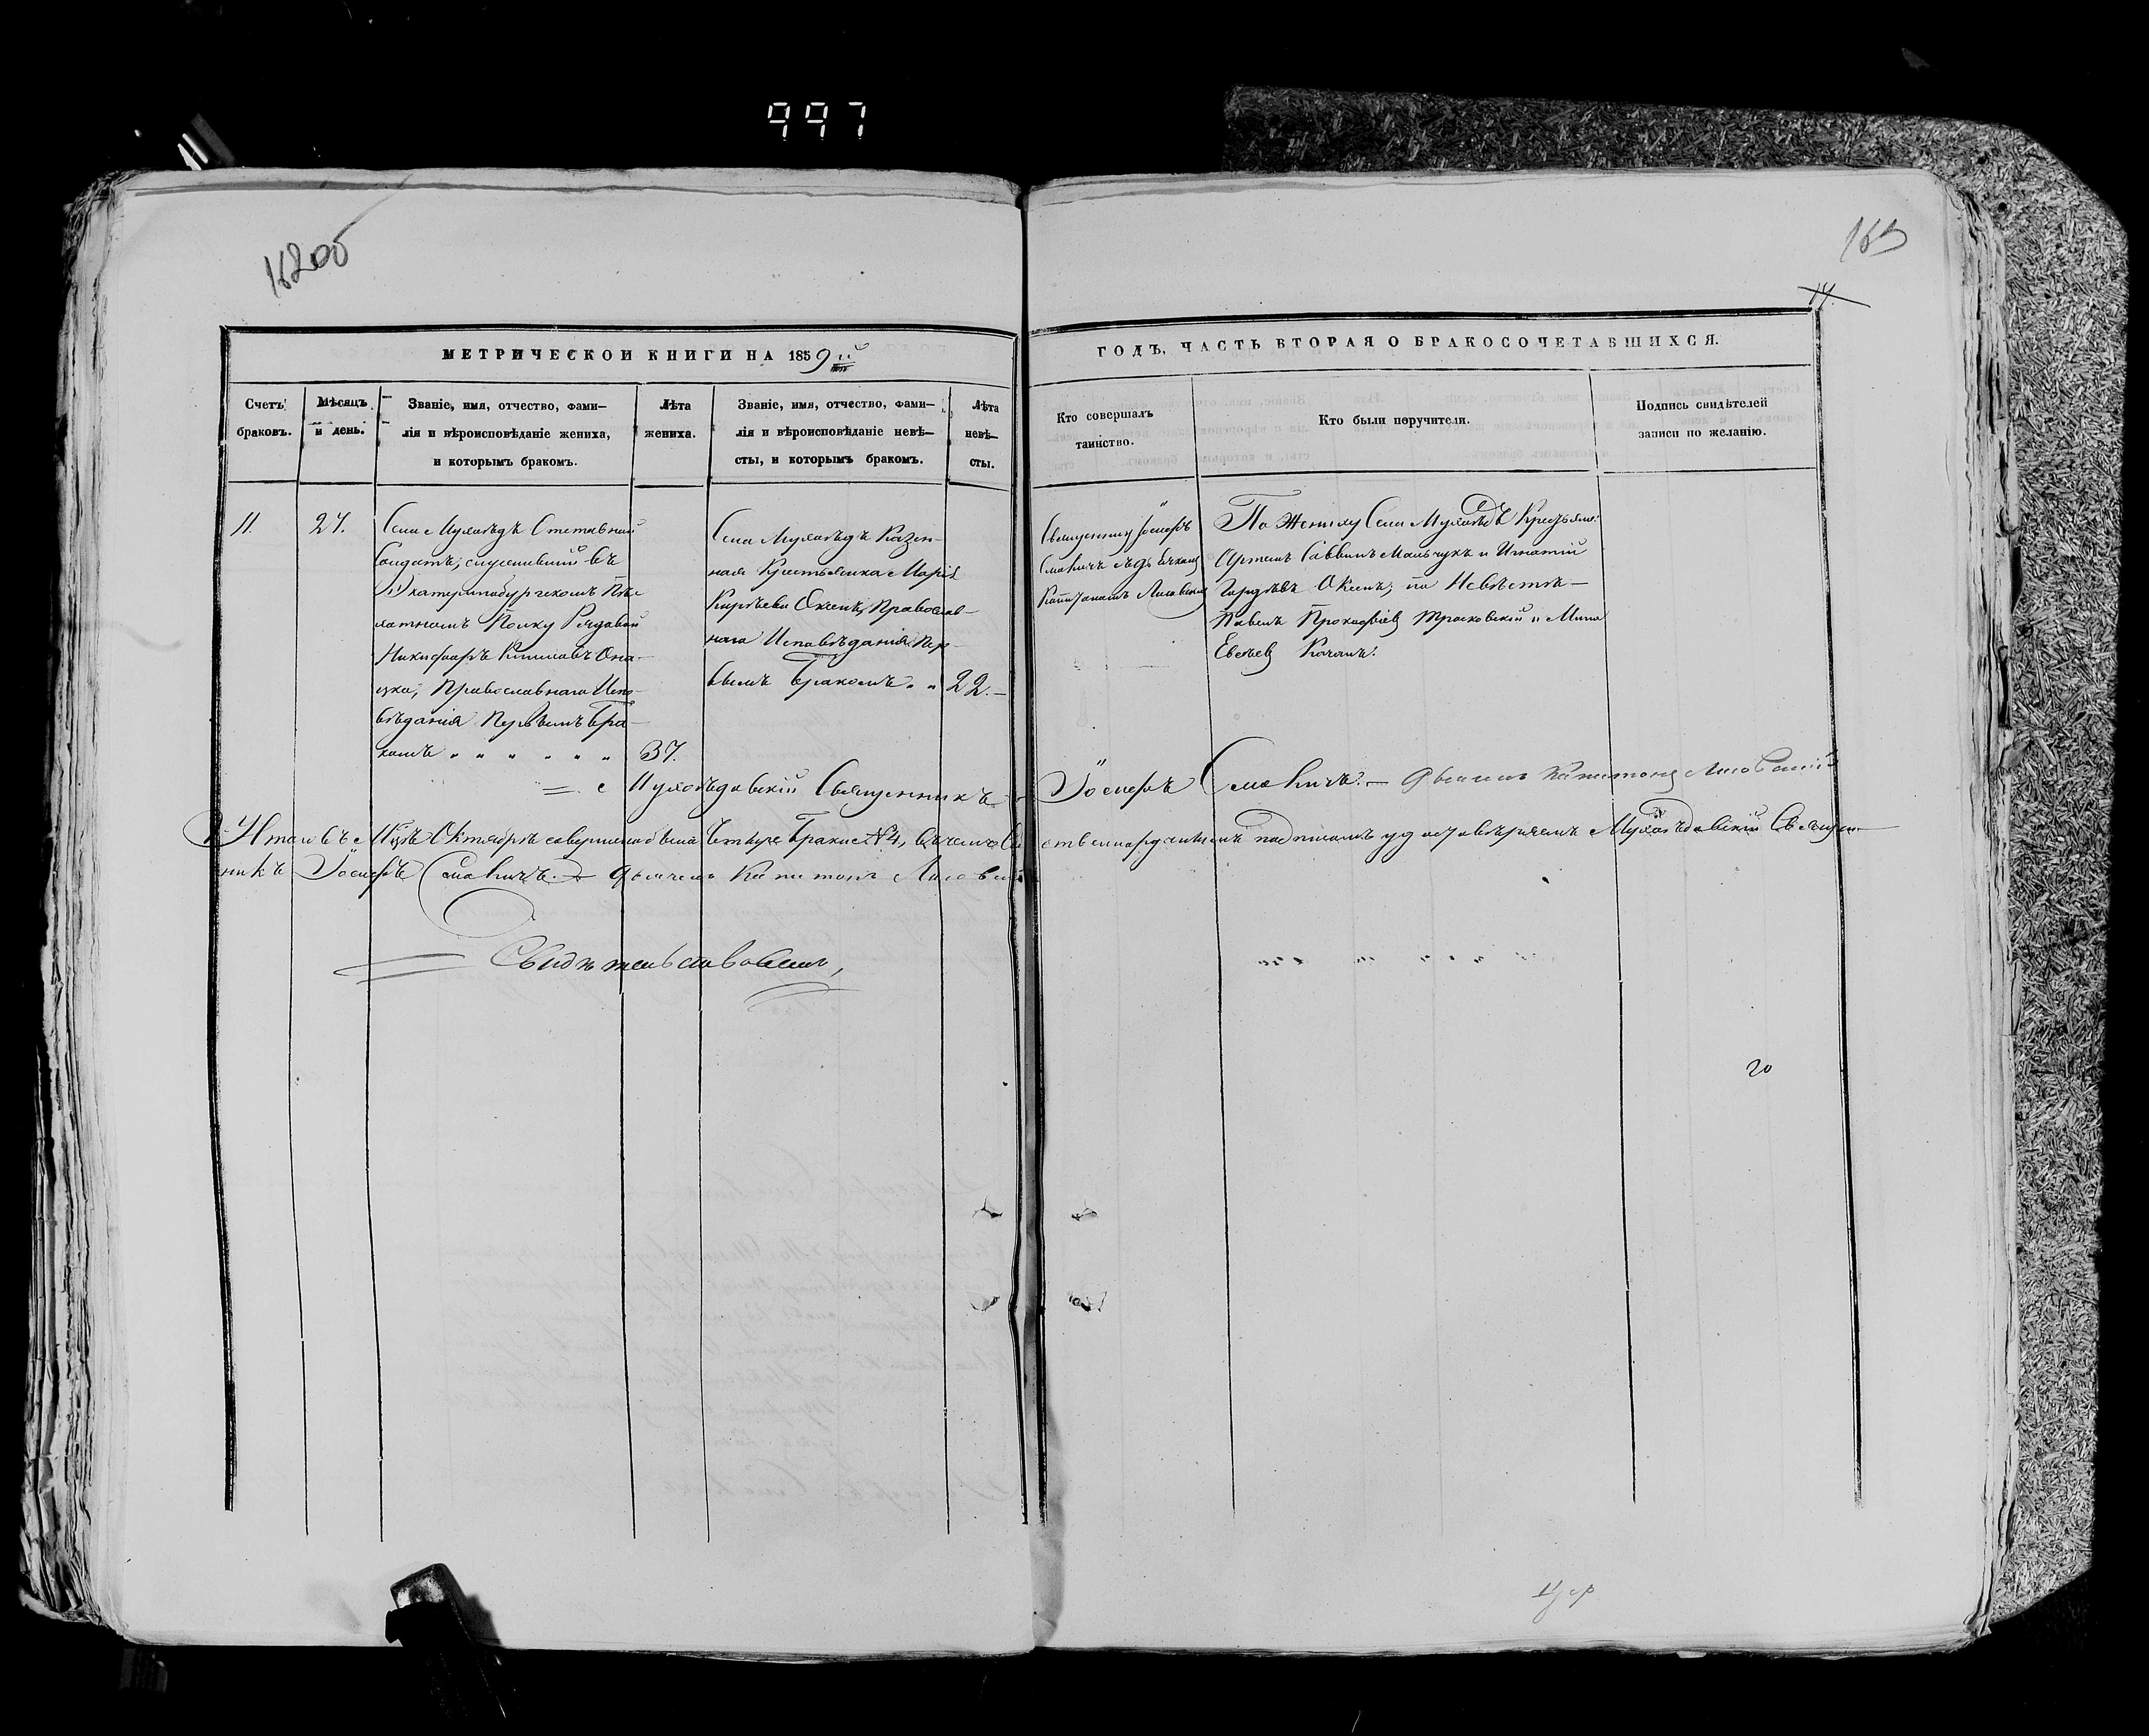 997
16200
163
14.
МЕТРИЧЕСКОЙ КНИГИ НА 1859 й
ГОДЪ, ЧАСТЬ ВТОРАЯ О БРАКОСОЧЕТАВШИХСЯ.
Счетъ браковъ.
Мѣсяцъ и день.
Званіе, имя, отчество, фами-
лія и вѣроисповѣданіе жениха,
и которымъ бракомъ.
Лѣта
жениха.
Званіе, имя, отчество, фами-
лія и вѣроисповѣданіе невѣ-
сты, и которымъ бракомъ.
Лѣта
невѣ-
сты.
Кто совершалъ
таинство.
Кто были поручители.
Подпись свидѣтелей
записи по желанію.
11.
27.
Села Муховѣдъ Отставный
Солдатъ, служившій въ
Екатеринбургскомъ Пѣх
латномъ Полку Рядовый
Никифоръ
Православнаго Испо-
вѣданія Первымъ Бра-
комъ " " " " " "
37.
Села Муховѣдъ Казен-
ная Крестьянка Марія
Православ-
наго Исповѣданія Пер-
вымъ Бракомъ " "
22.
Священникъ Іосифъ
Смокичъ съ Дьячкомъ
Капитономъ Лисовскимъ
По Жениху Села Муховѣдъ Крестьяне:
Артемъ Саввинъ Мальчукъ и Игнатій
по Невѣстѣ —
Павелъ Прокофіевъ и Мина
Евсѣевъ
= Муховѣдовскій Священникъ Іосифъ Смокичъ. — Дьячекъ Капитонъ Лисовскій
Итого въ М-цѣ Октябрѣ совершено было Четыре Брака № 4, въ чемъ Соб ственноручнымъ подписомъ удостовѣряемъ Муховѣдовскій Священ-
никъ Іосифъ Смокичъ. — Дьячекъ Капитонъ Лисовскій
= Свидѣтельствовалъ,
20